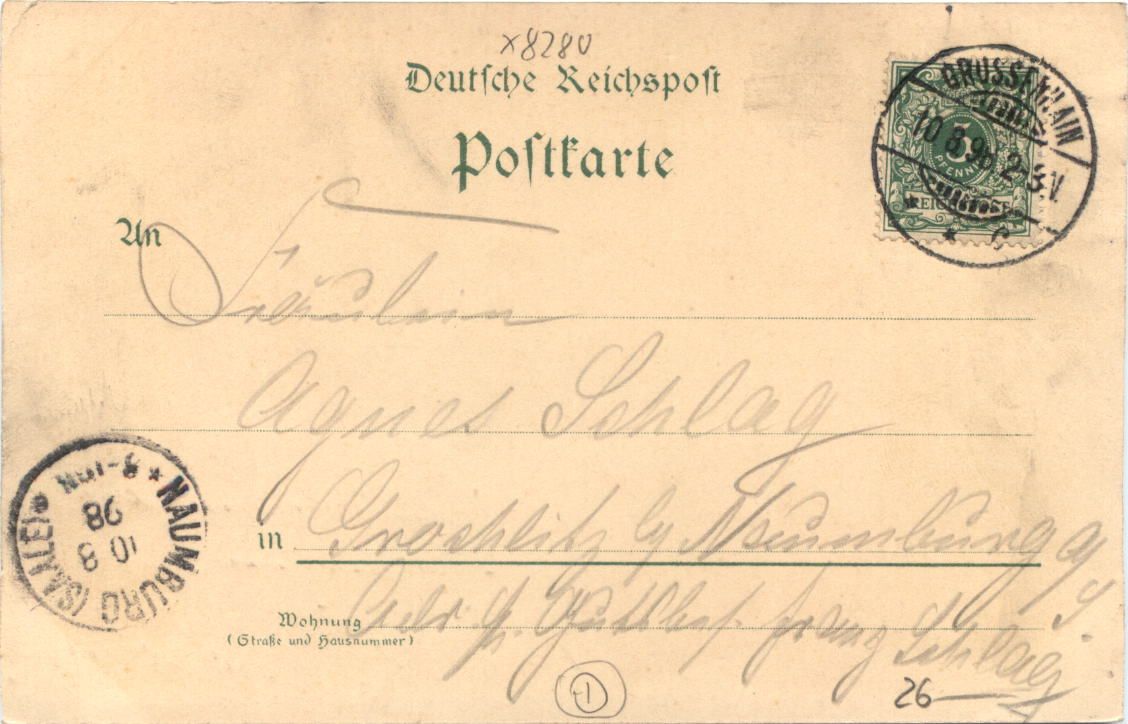 x8280
Deutsche Reichspost
Postkarte
GROSSENHAIN
10 8 98 2-3.V.
* * C
5
PFENNIG
REICHSPOST
An
Fräulein
Agnes Schlag
in Grochlitz b/ Naumburg a/
S.
Wohnung
(Straße und Hausnummer)
Adr. H. Gutsbes. Franz Schlag
NAUMBURG (SAALE)
10 8
98
26
1